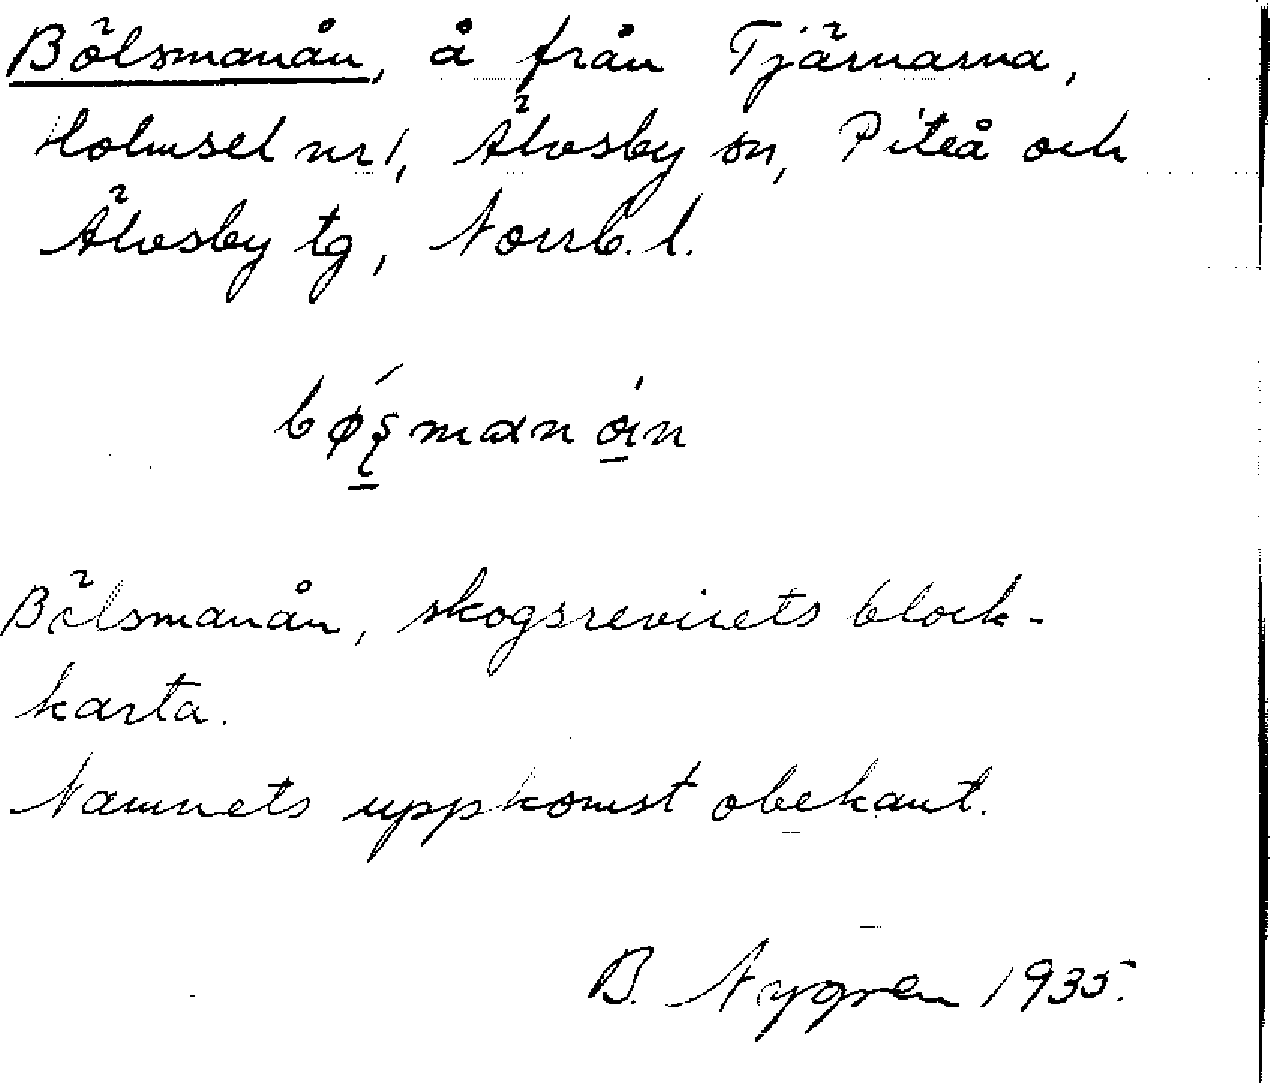 Bölsmanån, å från Tjärnarna,
Holmsel nr 1, Älvsby sn, Piteå och
Älvsby tg, Norrb. l.
Bölsmanån, skogsrevirets block-
karta.
Namnets uppkomst obekant.
B. Nygren 1935.